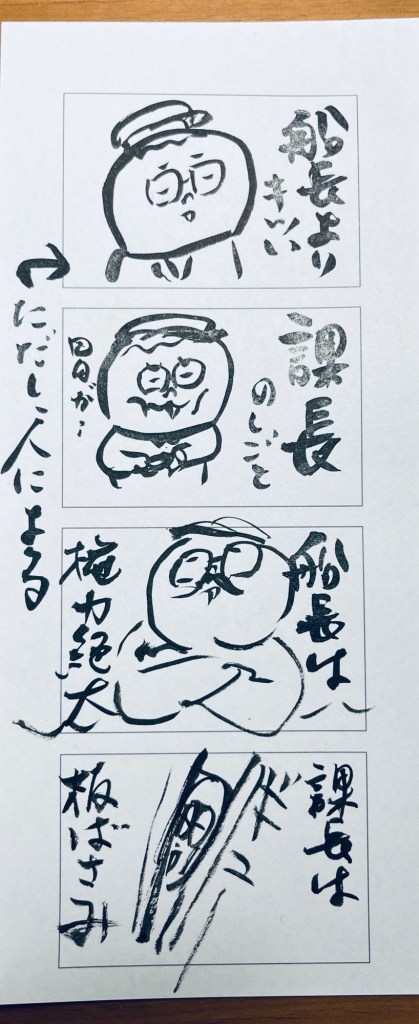 船長より
キツい
課長
のしごと
胃が…
船長は
権力絶大
課長は
板ばさみ
ただし人による